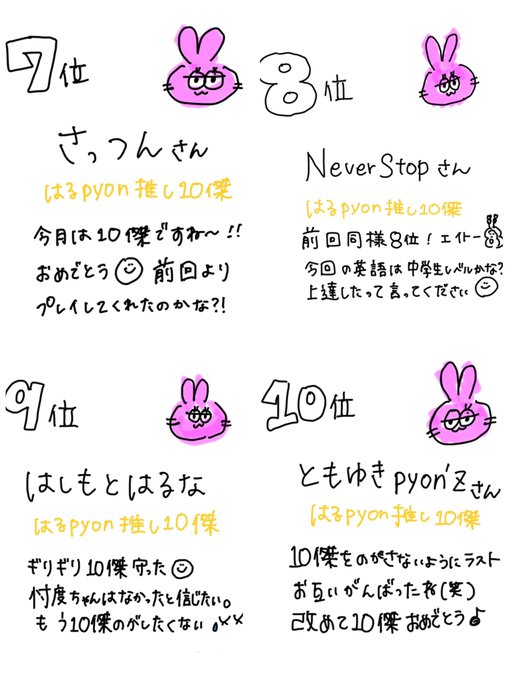 7位
さっつんさん
はるpyon推し10傑
今月は10傑ですね〜!!
おめでとう 前回より
プレイしてくれたのかな?!
8位
NeverStopさん
はるpyon推し10傑
前回同様8位!エイトー
今回の英語は中学生レベルかな?
上達したって言ってください
9位
はしもとはるな
はるpyon推し10傑
ギリギリ10傑守った
忖度ちゃんはなかったと信じたい。
もう10傑のがしたくない
10位
ともゆきpyon'zさん
はるpyon推し10傑
10傑をのがさないようにラスト
お互いがんばったね(笑)
改めて10傑おめでとう♪